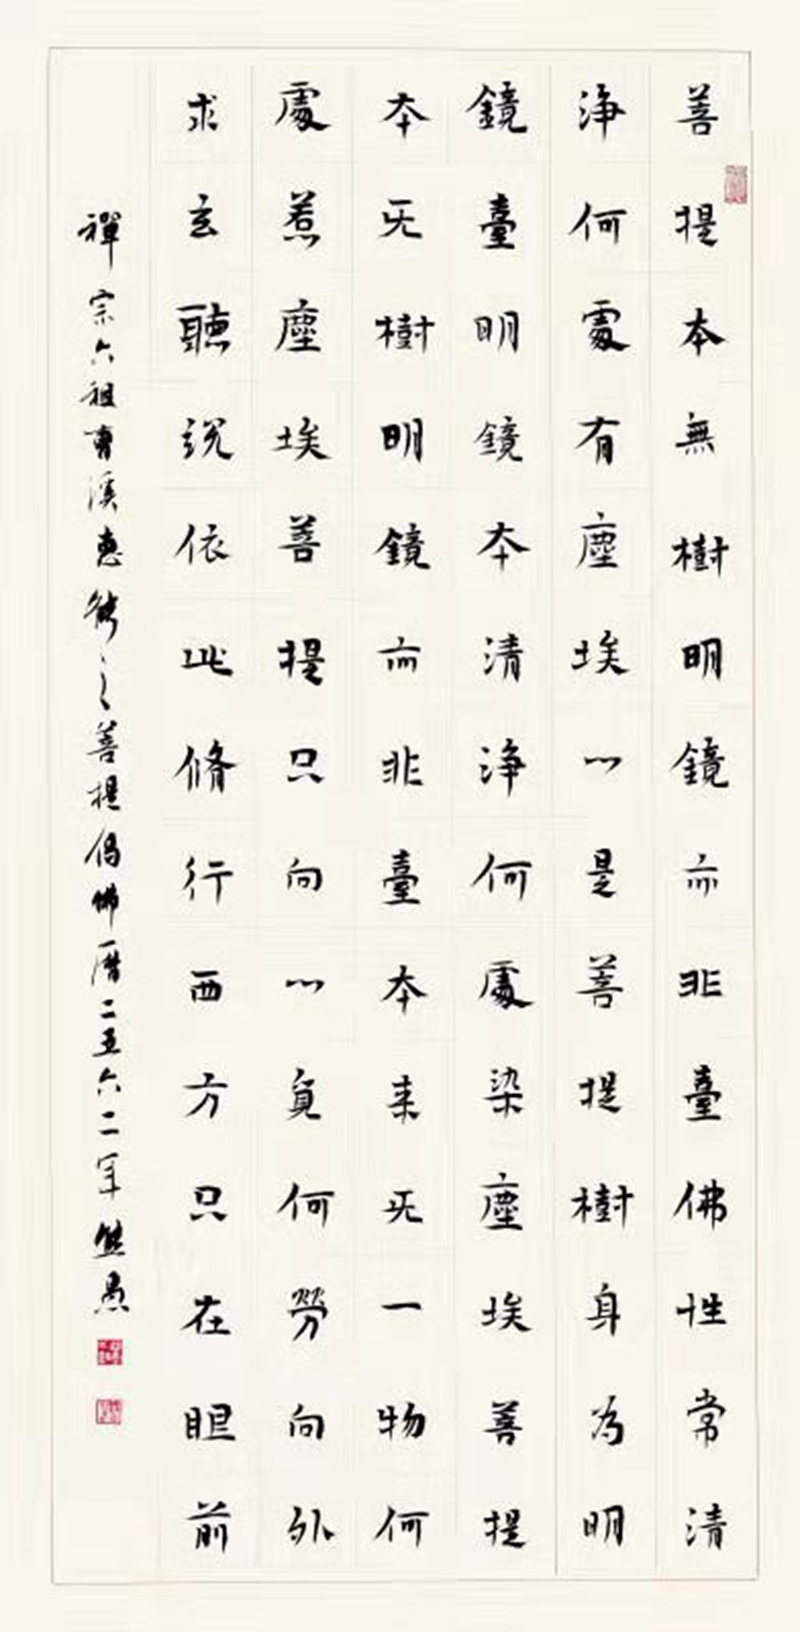 菩提本無樹明鏡亦非臺佛性常清
淨何處有塵埃心是菩提樹身為明
鏡臺明鏡本清淨何處染塵埃菩提
本无樹明鏡亦非臺本来无一物何
處惹塵埃菩提只向心覓何勞向外
求玄聽説依此脩行西方只在眼前
禪宗六祖曹溪惠能之菩提偈佛曆二五六二年